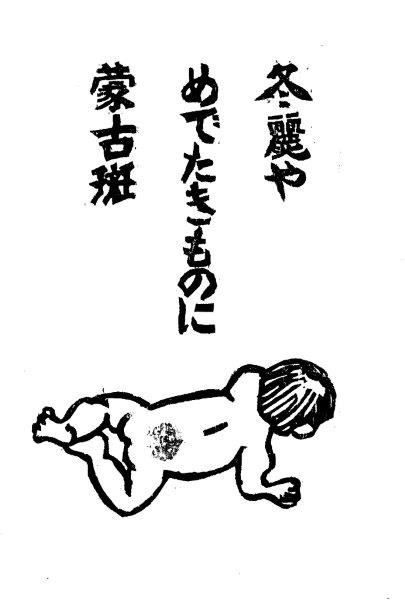 冬麗や
めでたきものに
蒙古斑